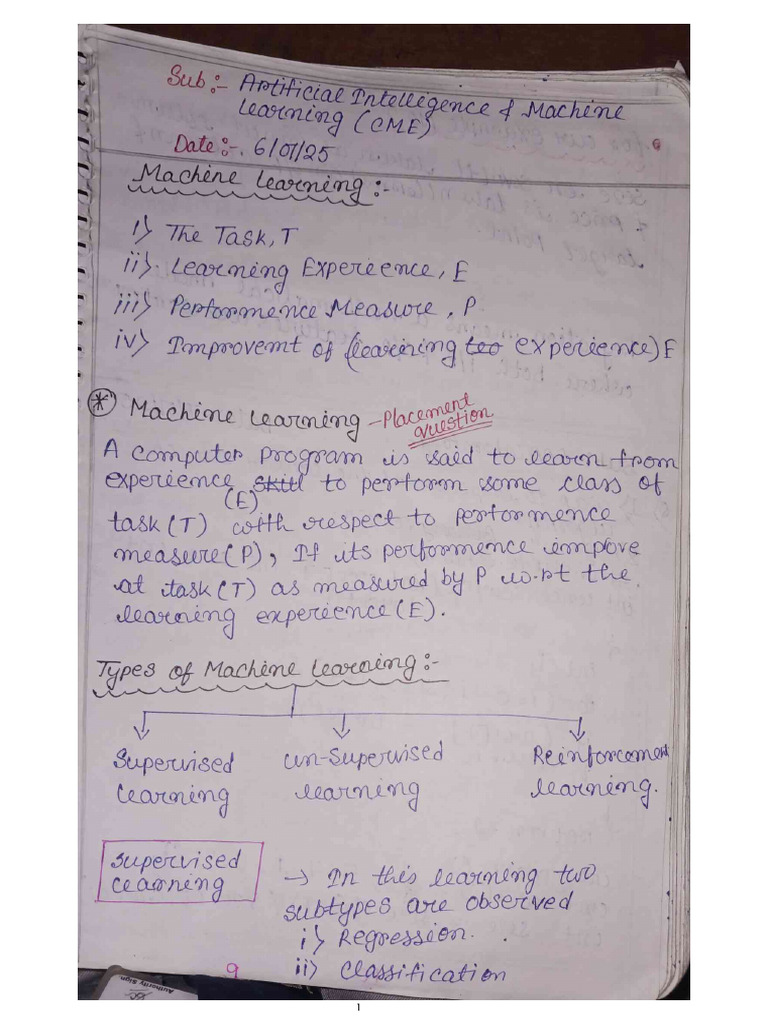 Sub:- Artificial Intelligence & Machine
Learning (CME)
Date:-. 6/01/25
Machine Learning:-
i) The Task, T
ii) Learning Expereence, E
iii) Performence Measure, P
iv) Improvemt of (learining too experience) E
* Machine Learning - Placement
Question
A computer program is said to learn from
experience skill to perform some class of
(E)
task(T) with respect to performence
measure(P), If its performence impove
at task(T) as measured by P w.r.t the
learning experience(E).
Types of Machine Learning:-
Supervised Learning
Un-Supervised Learning
Reinforcement Learning.
Supervised
Learning
→ In this learning two
subtypes are observed
i) Regression.
ii) Classification
9
Authority Sign
1